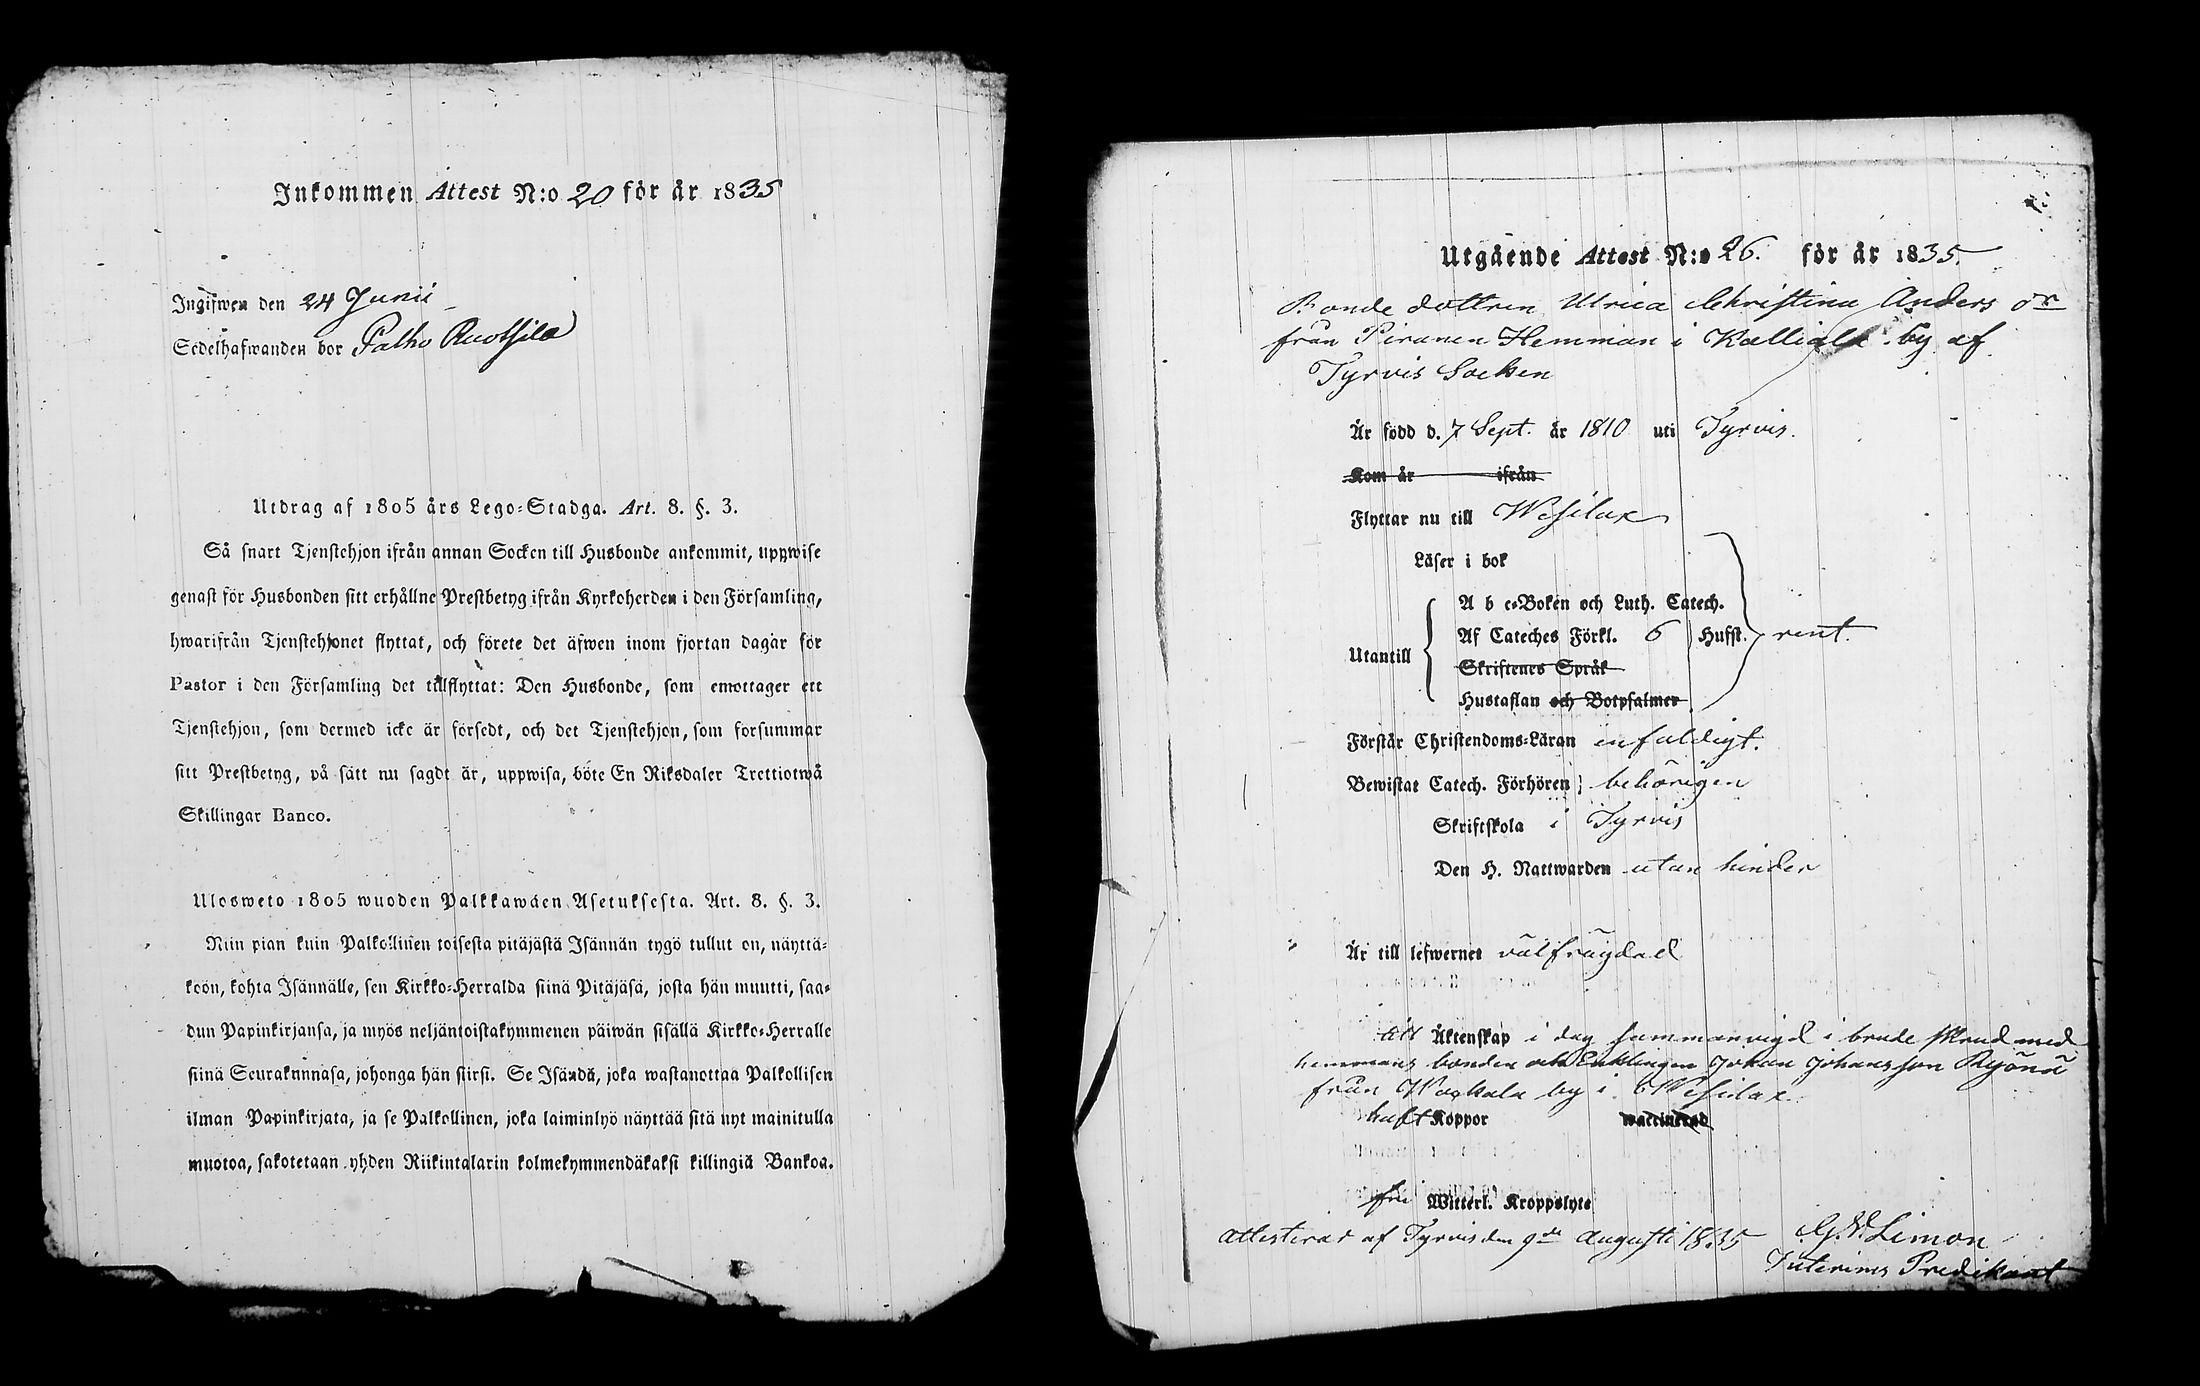 Inkommen Attest N:o 20 för år 1835
Ingifwen den 24 Junii
Sedelhafwanden bor Palho Ruotsila
Utdrag af 1805 års Lego-Stadga. Art. 8. §. 3.
Så snart Tjenstehjon ifrån annan Socken till Husbonde ankommit, uppwise
genast för Husbonden sitt erhållne Prestbetyg ifrån Kyrkoherden i den Församling,
hwarifrån Tjenstehjonet flyttat, och förete det äfwen inom fjortan dagar för
Pastor i den Församling det tillflyttat: Den Husbonde, som emottager ett
Tjenstehjon, som dermed icke är försedt, och det Tjenstehjon, som forsummar
sitt Prestbetyg, på sätt nu sagdt är, uppwisa, böte En Riksdaler Trettiotwå
Skillingar Banco.
Ulosweto 1805 wuoden Palkkawäen Asetuksesta. Art. 8. §. 3.
Niin pian kuin Palkollinen toisesta pitäjästä Isännän tygö tullut on, näyttä-
köön, kohta Isännälle, sen Kirkko-Herralda siinä Pitäjäsä, josta hän muutti, saa-
dun Papinkirjansa, ja myös neljäntoistakymmenen päiwän sisällä Kirkko-Herralle
siinä Seurakunnasa, johonga hän siirsi. Se Isändä, joka wastanottaa Palkollisen
ilman Papinkirjata, ja se Palkollinen, joka laiminlyö näyttää sitä nyt mainitulla
muotoa, sakotetaan yhden Riikintalarin kolmekymmendäkaksi killingiä Bankoa.
Utgående Attest N:o 26. för år 1835.
Bonde dottren Ulrica Christina Anders dr
från Piranen Hemman i Kalliala by af
Tyrvis Socken
Är född d. 7 Sept. år 1810 uti Tyrvis.
Kom år ifrån
Flyttar nu till Wesilax
Läser i bok
A b c-Boken och Luth. Catech.
Af Cateches Förkl. 6 Hufst. rent.
Utantill
Skriftenes Språk
Hustaflan och Botpsalmer
Förstår Christendoms-Läran enfaldigt.
Bewistat Catech. Förhören behörigen
Skriftskola i Tyrvis
Den H. Nattwarden utan hinder
Är till lefwernet välfrägdad
till Äktenskap i dag sammanvigd i brude skrud med
hemmans bonden och Enklingen Johan Johansson
från Wackala by i Wesilax
haft Koppor waccinerad
fri Witterl. Kroppslyte
Attesterar af Tyrvis den 9de Augusti 1835 G. W. Limon
Interims Predikant